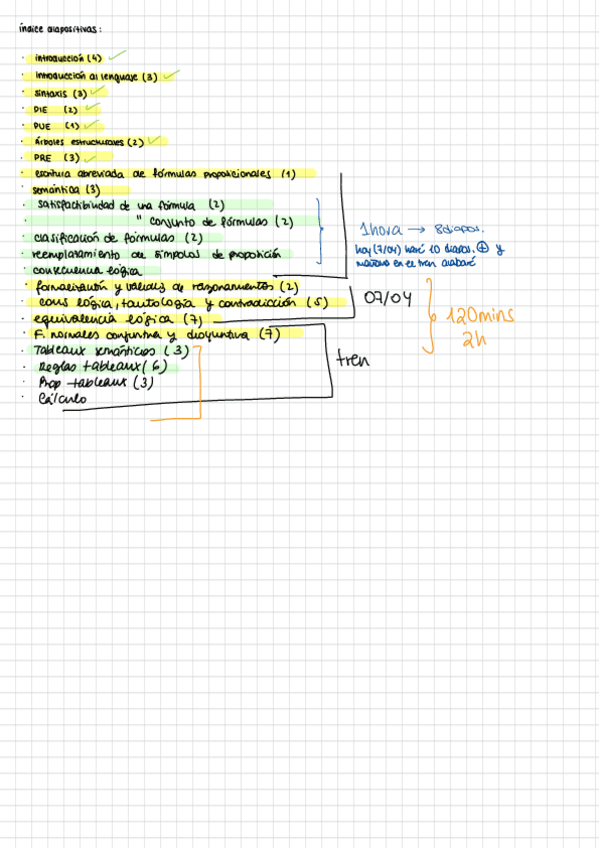 índice diapositivas:
· introducción (4) ✓
· introducción al lenguaje (3) ✓
· sintaxis (3) ✓
· DIE (2) ✓
· PUE (1) ✓
· Árboles estructurales (2) ✓
· PRE (3) ✓
· escritura abreviada de fórmulas proposicionales (1)
· semántica (3)
· satisfactibilidad de una fórmula (2)
· " conjunto de fórmulas (2)
· clasificación de fórmulas (2)
· reemplazamiento de símbolos de proposición
· consecuencia lógica
1 hora → 8 diapos.
hoy (7/04) haré 10 diapos. ⊕ y
mañana en el tren acabaré
· formalización y validez de razonamientos (2)
· cons lógica, tautología y contradicción (5)
· equivalencia lógica (7)
07/04
120 mins
2h
· F. normales conjuntiva y disyuntiva (7)
· Tableaux semánticos (3)
· Reglas tableaux (6)
· Prop tableaux (3)
· Cálculo
tren